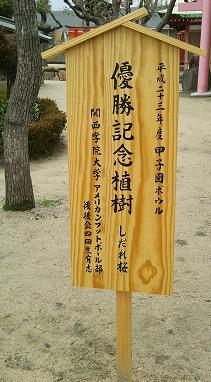 平成二十三年度 甲子園ボウル
優勝記念植樹 しだれ桜
関西学院大学 アメリカンフットボール部
後援会四回生有志